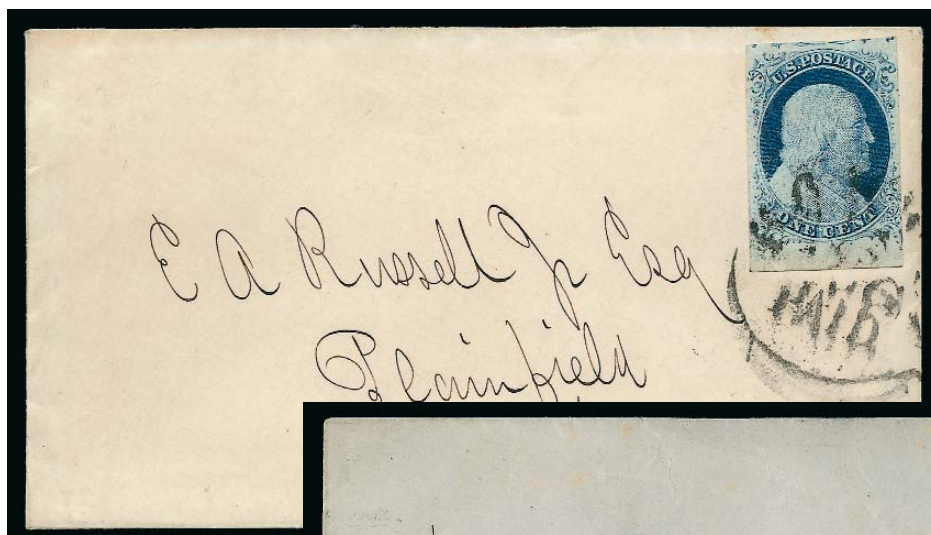 U.S. POSTAGE
ONE CENT
E A Russell Jr Esq
Plainfield
PAID